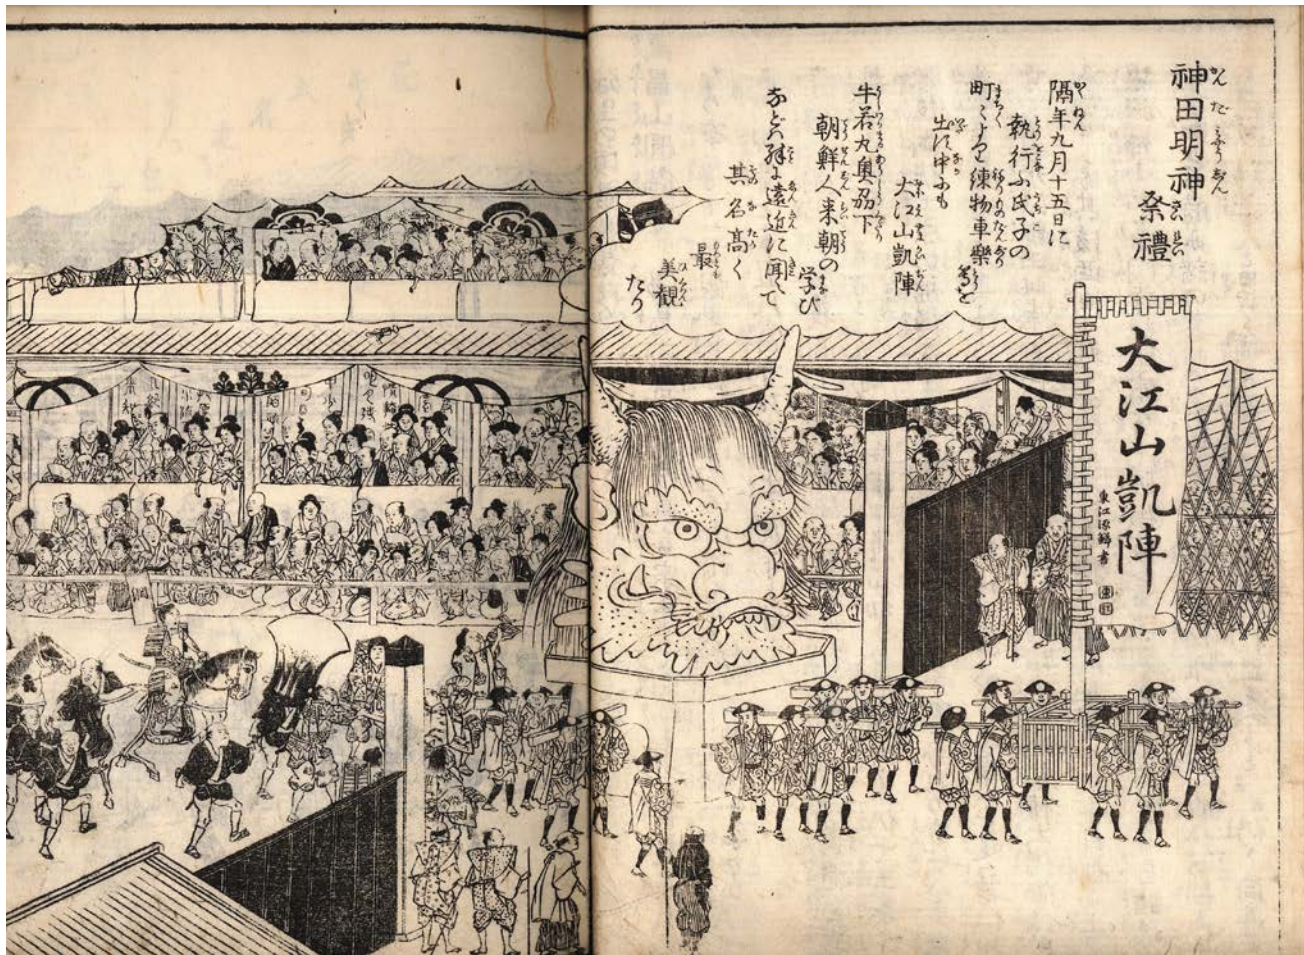 神田明神
祭禮
隔年九月十五日に
執行ふ氏子の
町々より練物車樂等を
出す中にも
大江山凱陣
牛若丸奥刕下
朝鮮人来朝の
学び
などハ殊に遠近に聞えて
其名高く
最
美観
たり
大江山凱陣
東江源鱗書